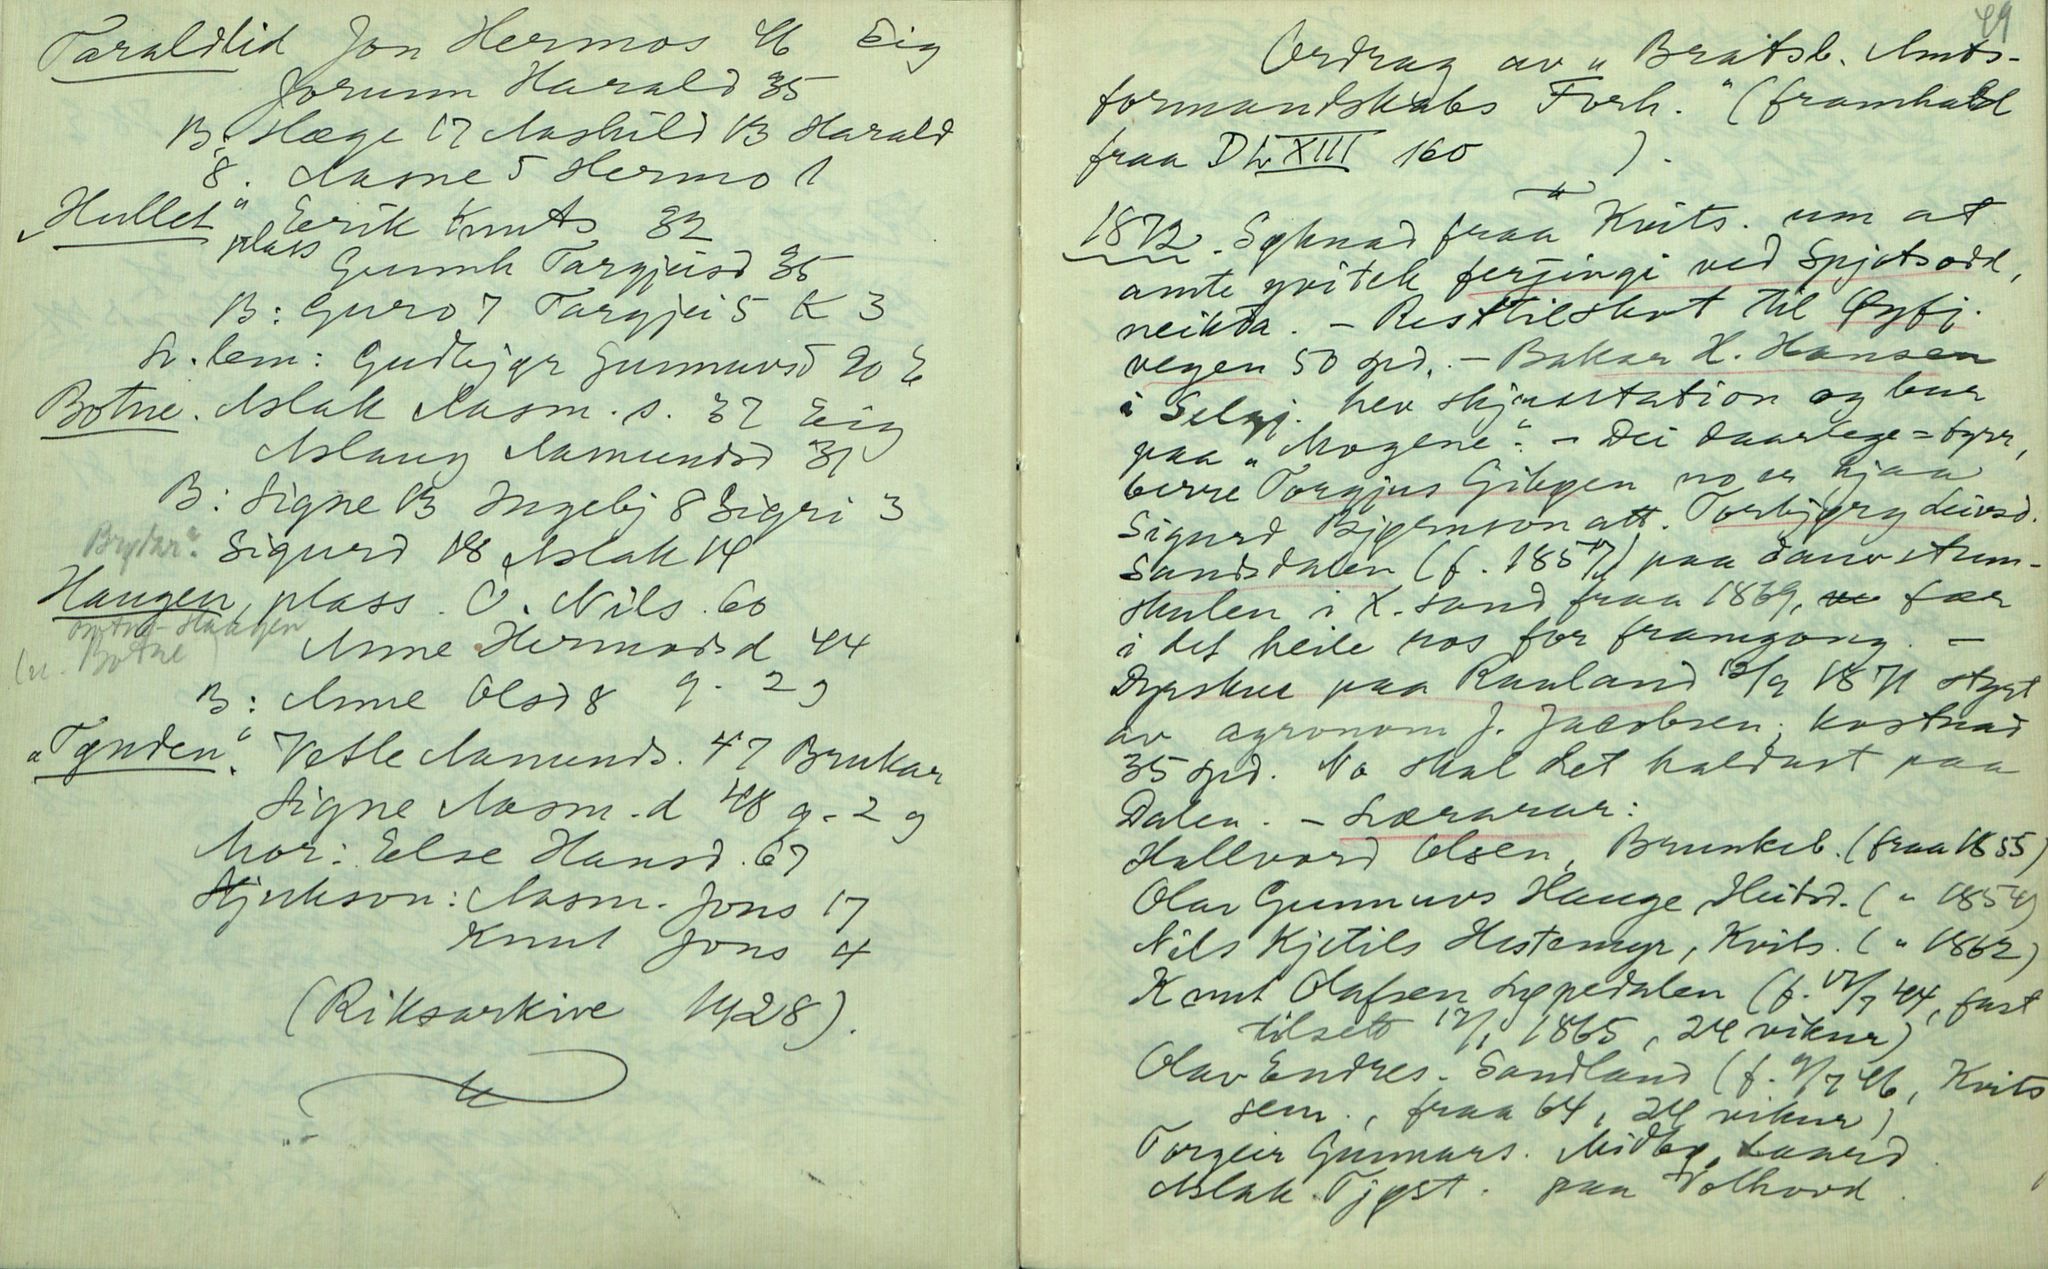 Taraldlid Jon Hermos 46 Eig
Jorunn Harald 35
B: Hæge 17 Aashild 13 Harald
8. Aasne 5 Hermo 1
"Hullet" Eerik Knuts 32
plass
Gunnh Targjusd 35
B: Guro 7 Targjei 5 K 3
Sv. lem: Gudbjør Gunnuvsd 20
Botne. Aslak Aasm. s. 37 Eig
Aslaug Aamundsd 31
B: Signe 13 Ingebj 8 Sigri 3
Brydar: Sigurd 18 Aslak 14
Haugen, plass. O. Nils. 60
Botne-Haugen
Anne Hermodsd 44
Botne)
B: Anne Olsd 8 g. 2 g
"Tynden". Vetle Aamunds. 47 Brukar
Signe Aasm. d 48 g. 2 g
Mor: Else Hansd. 67
Stjukson: Aasm. Jons 17
Knut Jons 4
(Riksarkive 1928).
49
Ordrag av "Bratsb. Amts-
formandskabs Forh." (framhald
fraa Dh XIII 160 ).
1872. Søknad fraa Kvits. um at
amte yvitek ferjingi ved Spjotsodd,
neikta. - Resttilskot til Øyfj.
vegen 50 spd. - Bakar H. Hansen
i Selgj. hev skjusstation og bur
paa "Mogene". - Dei daarlege =
berre Torgjus Gibøen no er hjaa
Sigurd Bjørnson att. Torbjørg Leivsd.
Sandsdalen (f. 1857) paa dauvstum-
skulen i K. sand fraa 1869, fær
i det heile ros for framgong. -
Dyrskue paa Rauland 12/9 1871 styrt
av agronom J. Jacobsen; kostnad
35 spd. No skal det haldast paa
Dalen. - Lærarar:
Hallvord Olsen, Brunkeb. (fraa 1855)
Olav Gunnuvs Hauge, Heitsd. (" 1854)
Nils Kjetils Hestemyr, Kvits. (" 1862)
Knut Olafsen Lyngdalen (f. 44, fast
tilsett 12/1 1865, 24 vikur)
Olav Endres. Sandland (f. 9/7 46, Kvits
sem., fraa 64, 24 vikur)
Torgeir Gunnars. Midbø, Laard.
Aslak Tjøst. paa Volhovd.